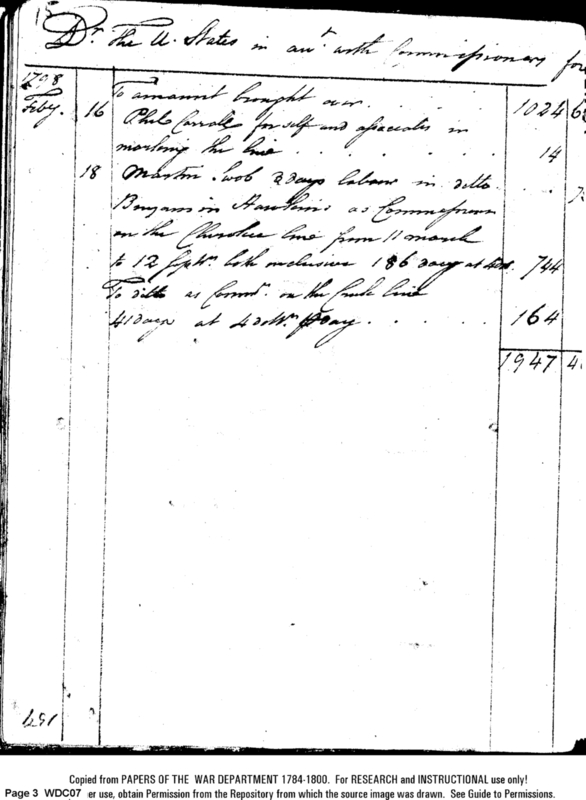 15
Dr. The U. States in acct. with Commissioners for
1798
Feby. 16 To amount brought over . . . 1024 6
Phil Carroll for self and associates in
marking the line . . . . . . . 14
18 Martin 2 days labour in ditto . . 7
Benjamin Hawkins as Commissioner
on the Cherokee line from 11 march
to 12 Septr. both inclusive 186 days at 4 744
To ditto as Commr. on the Creek line
41 days at 4 dolls. Pday . . . . . 164
1947 4
Copied from PAPERS OF THE WAR DEPARTMENT 1784-1800. For RESEARCH and INSTRUCTIONAL use only!
Page 3 WDC07 er use, obtain Permission from the Repository from which the source image was drawn. See Guide to Permissions.